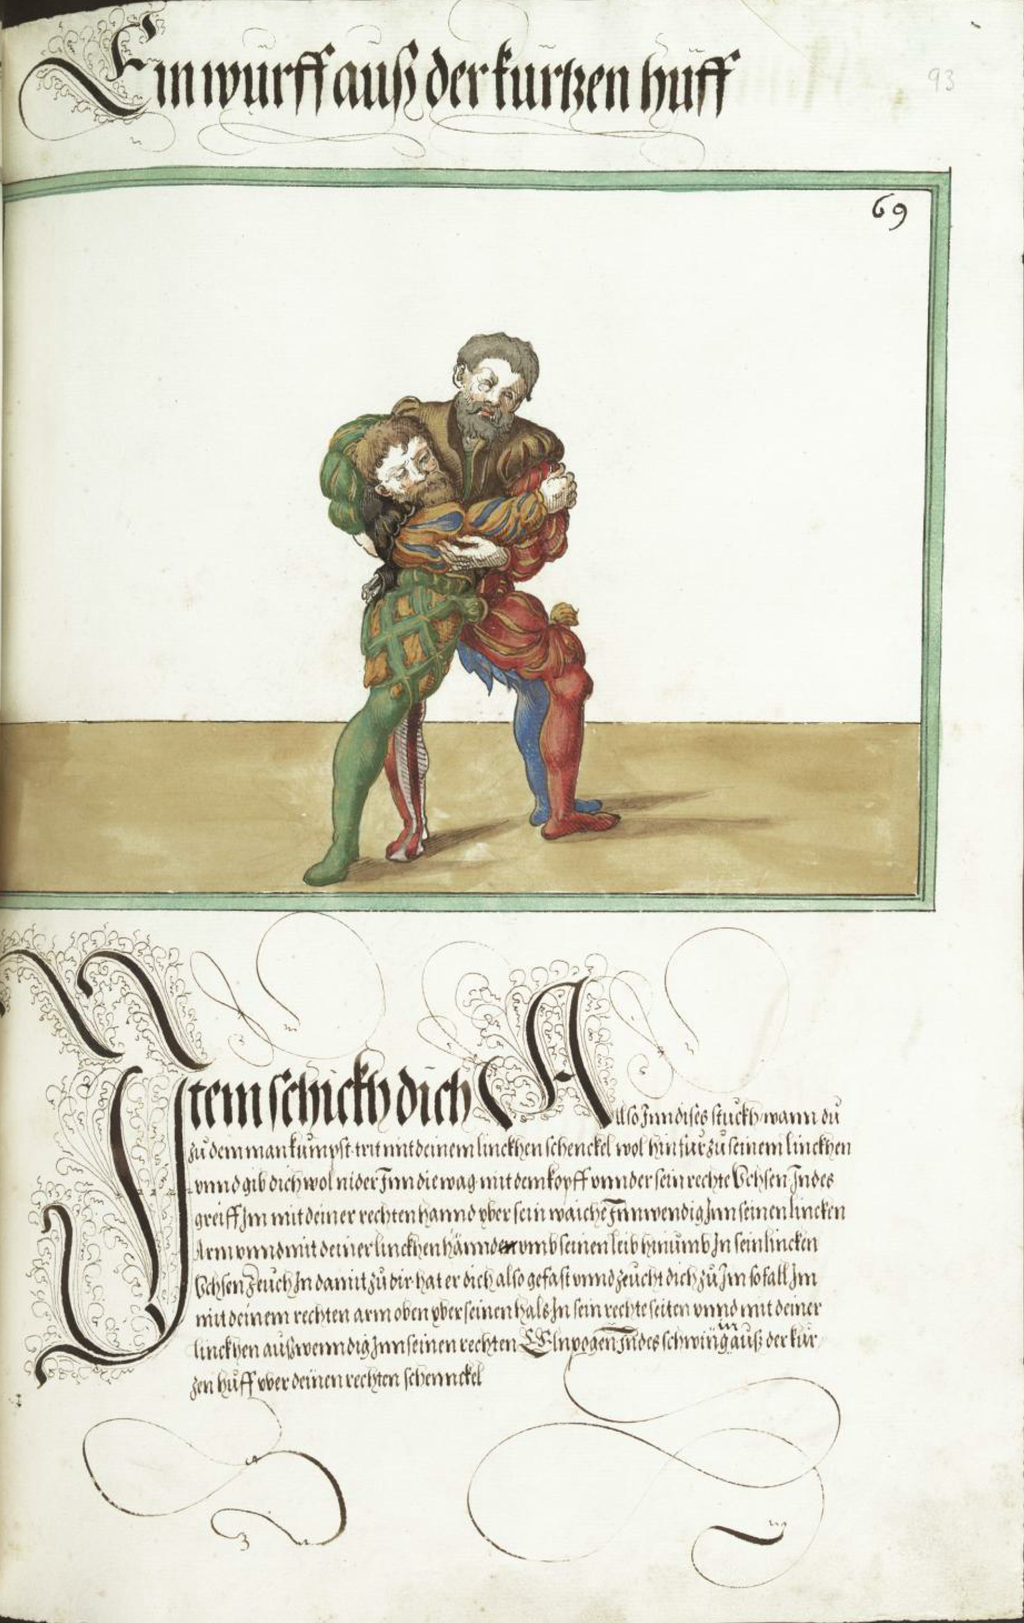 Ein wurff auß der kurtzen huff
93
69
Item schickh dich Also Jnn dises stuckh wann du
zu dem man kumpst trit mit deinem linckhen schenckel wol hin für zu seinem linckhen
vnnd gib dich wol nider Jnn die wag mit dem kopff vnnder sein rechte Vchsen Jndes
greiff Jm mit deiner rechten hannd vber sein waiche Jnnwendig Jnn seinen lincken
Arm vnnd mit deiner linckhen hannd vmb seinen leib hinumb Jn sein lincken
Vchsen Zeuch Jn damit zu dir hat er dich also gefast vnnd zeucht dich zu Jm so fall Jm
mit deinem rechten arm oben vber seinen hals Jn sein rechte seiten vnnd mit deiner
linckhen außwenndig Jnn seinen rechten Elnpogen Jndes schwing in auß der kur
zen huff vber deinen rechten schennckel